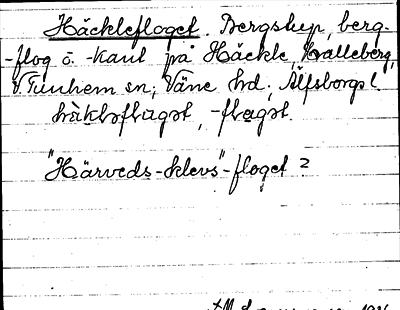 Häckleflaget. Bergstup, berg-
-flog o. -kant på Häckle, Halleberg,
V. Tunhem sn; Väne hd; Älfsborgs l.
hàkləflagət, -flagət.
"Härveds-klevs"-floget?